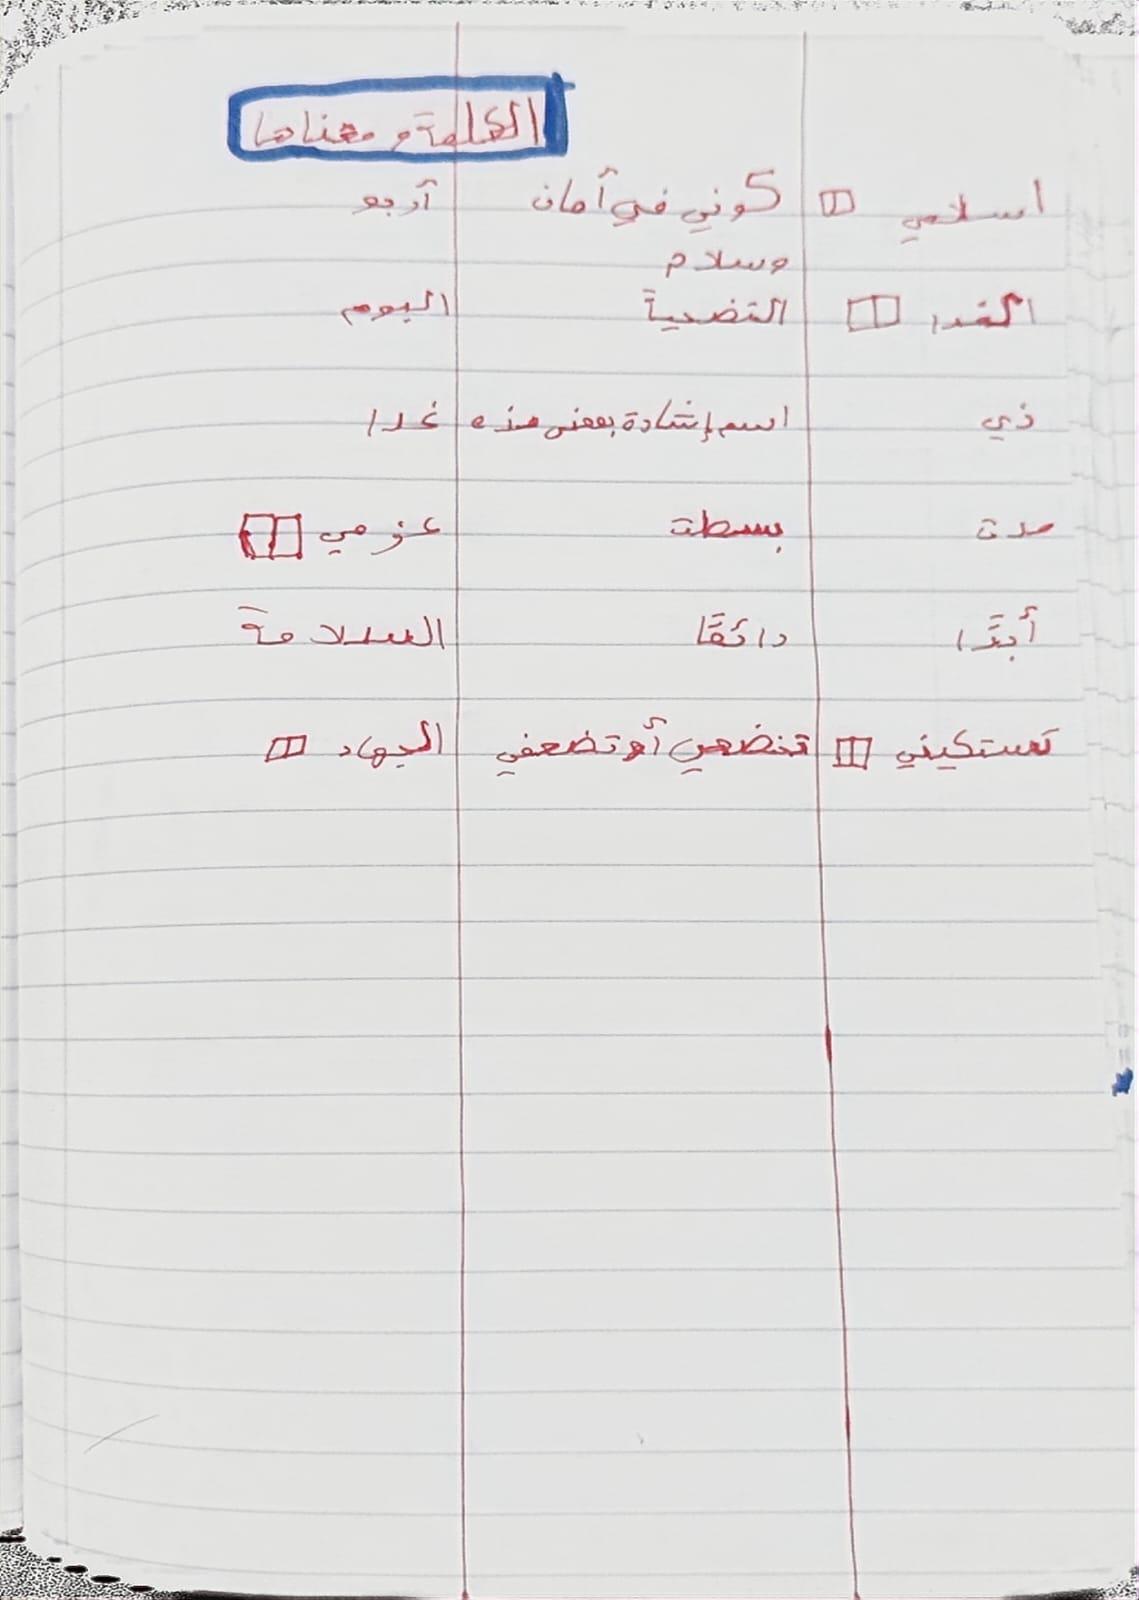 الكلمة ومعناها
اسلامي كوني في أمان أرجو
وسلام
الفدا التضحية اليوم
ذي اسم إشارة بمعنى هذه غدا
مدت بسطت عزمي
أبدًا دائمًا السلامة
تستكيني تخضعي أو تضعفي الجهاد